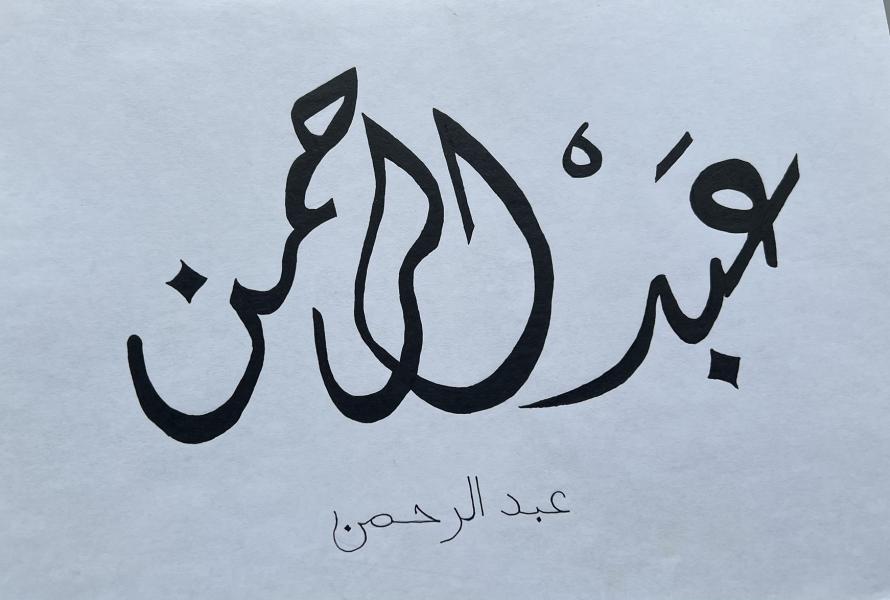 عبد الرحمن
عبد الرحمن